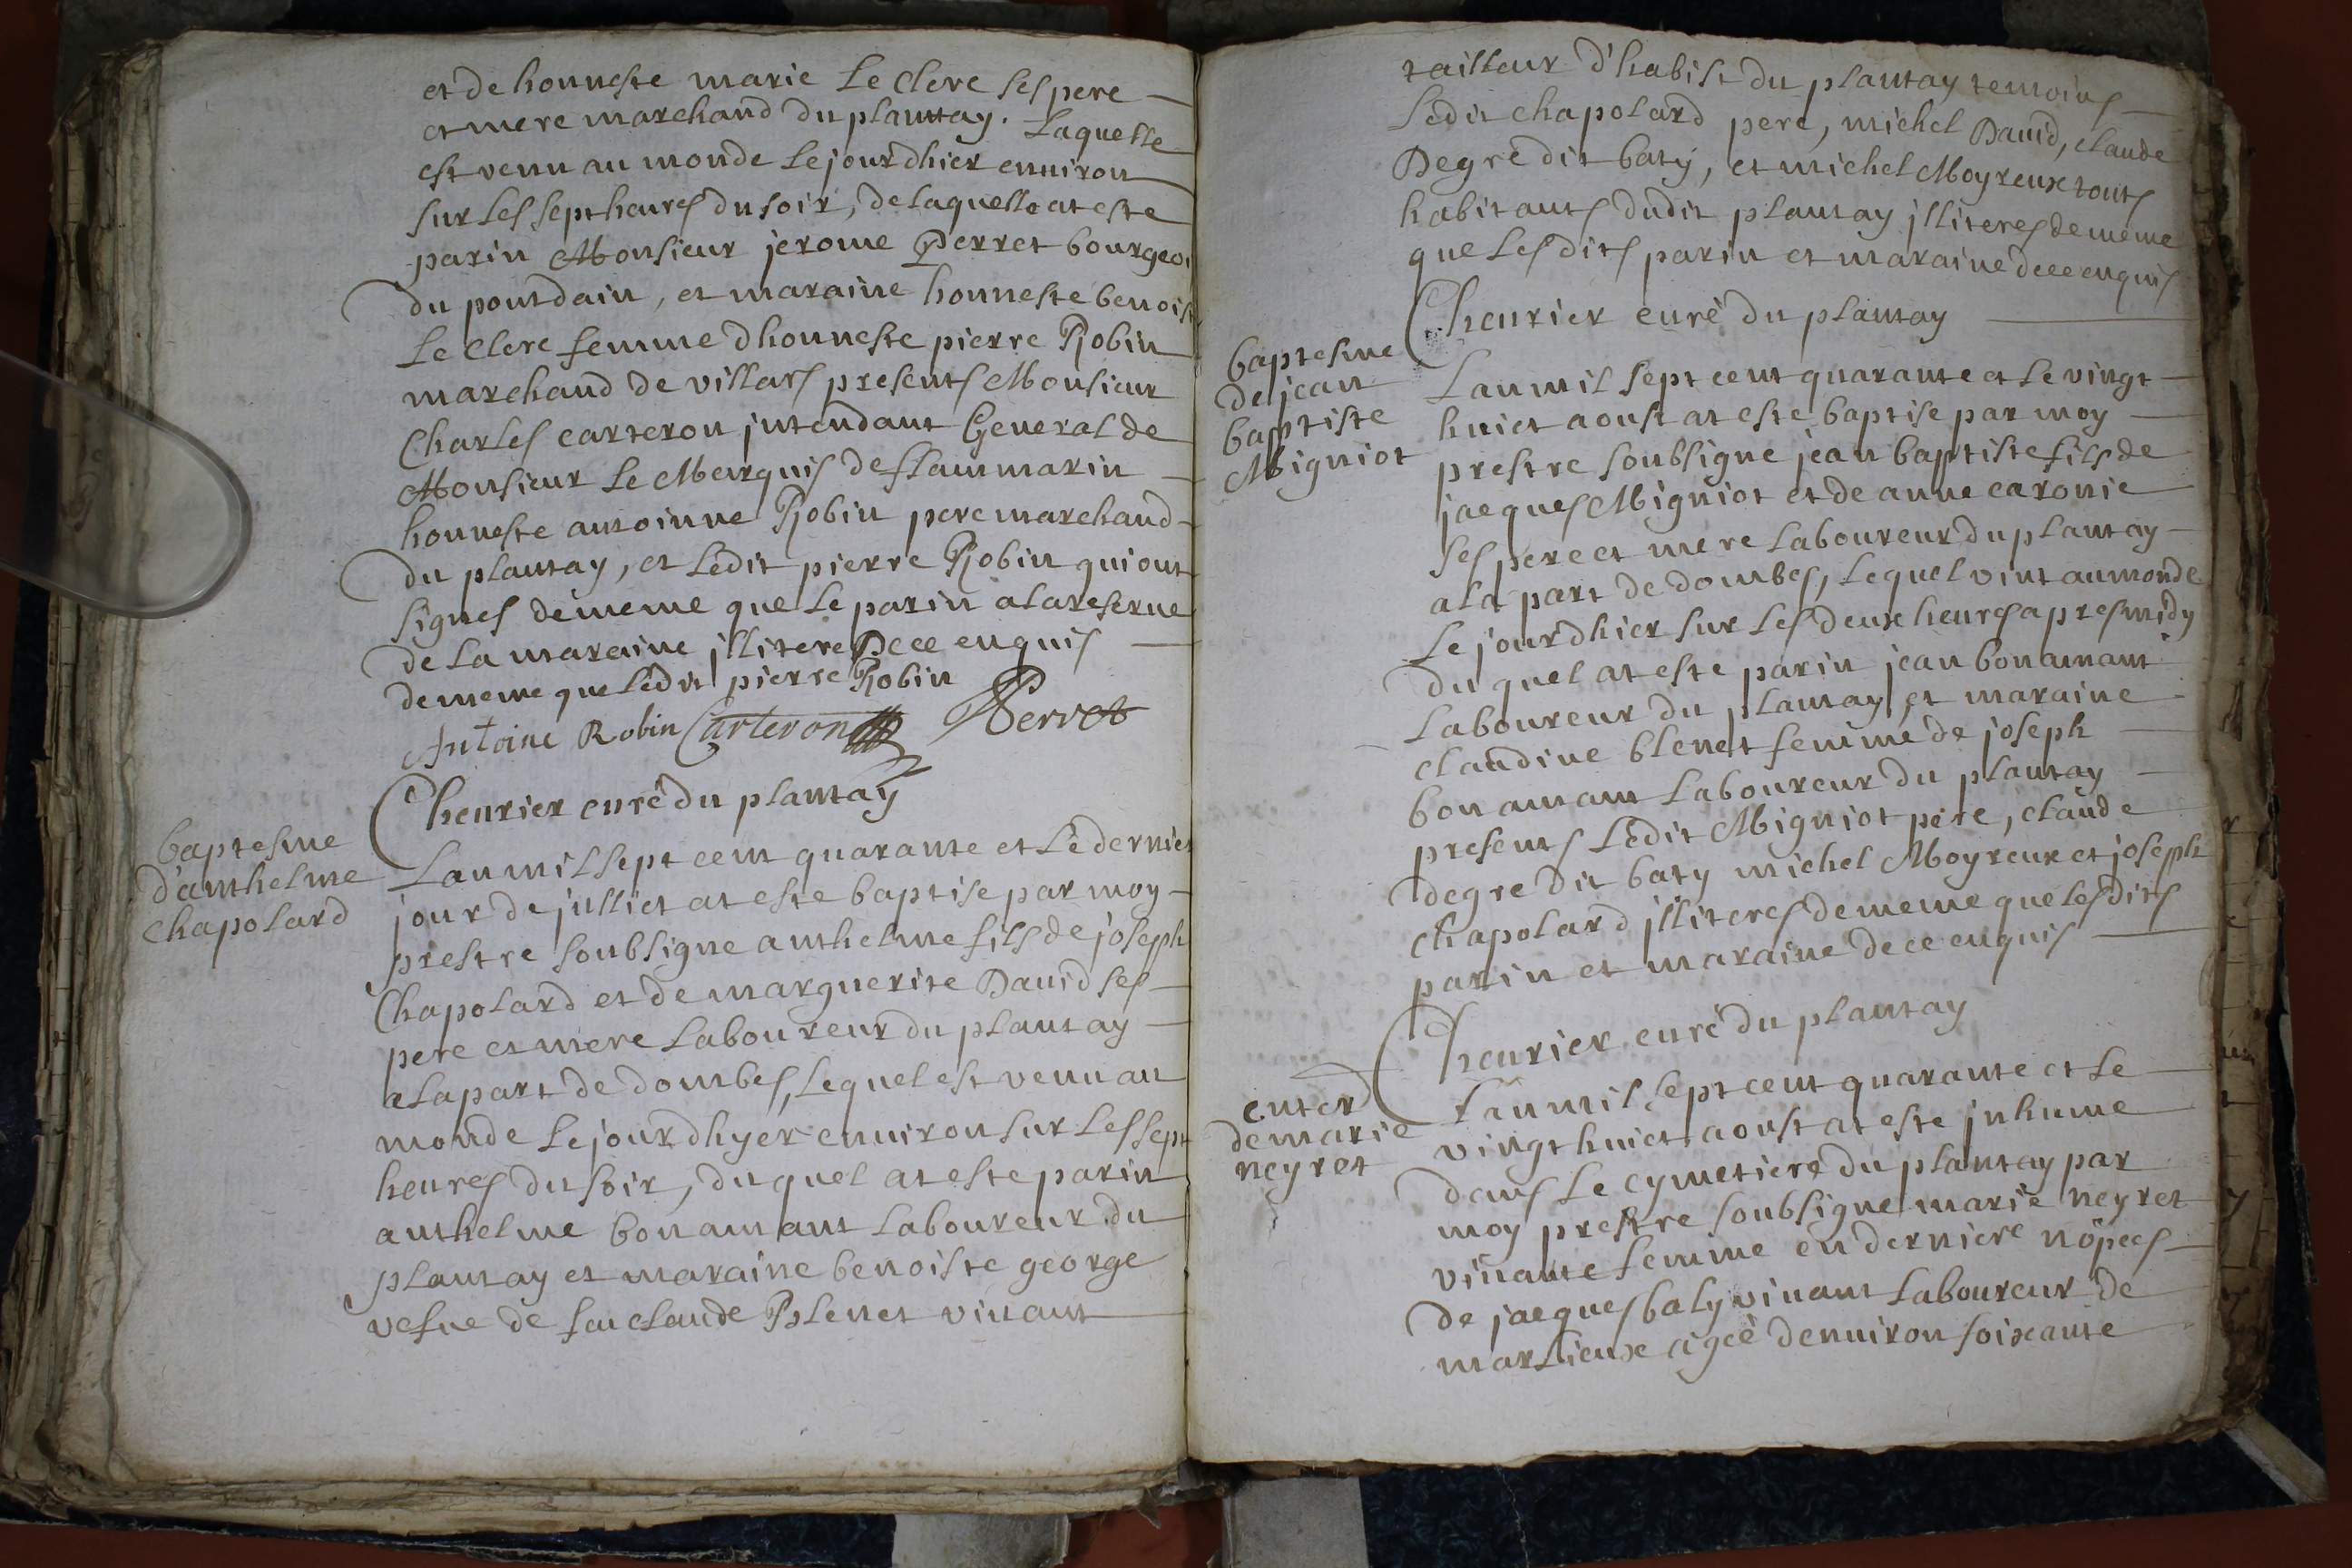 et de honneste marie Le Clerc ses pere
et mere marchand du plantay. Laquelle
est venu au monde Le jour dhier enuiron
sur Les sept heures du soir, de Laquelle at este
parin Monsieur jerome Perret bourgeoi
du pontdain, et maraine honneste benoist
Le Clerc femme dhonneste pierre Robin
marchand de villars presents Monsieur
Charles carteron jntendant General de
Monsieur Le Marquis de flammarin
honneste antoinne Robin pere marchand
du plantay, et Ledit pierre Robin qui ont
signes demême que Le parin a la reserue
de La maraine jllitere De ce enquis
demême que Ledit pierre Robin
Antoine Robin Carteron Perret
Cheurier curé du plantay
baptesme
d'anthelme
chapolard
Lan mil sept cent quarante et Le dernier
jour de julliet at este baptise par moy
prestre soubsigne anthelme fils de joseph
Chapolard et de marguerite Dauid ses
pere et mere Laboureur du plantay
a La part de dombes, Lequel est venu au
monde Le jour dhyer enuiron sur Les sept
heures du soir, du quel at este parin
anthelme bonamant Laboureur du
plantay et maraine benoiste george
vefue de feu claude Plenet viuant
tailleur d'habist du plantay temoins
Ledit chapolard pere, michel Dauid, claude
Degre dit baty, et michel Moyreux touts
habitants dudit plantay jlliteres demême
que Les dits parin et maraine de ce enquis
Cheurier curé du plantay
baptesme
de jean
baptiste
Migniot
Lan mil sept cent quarante et Le vingt
huict aoust at este baptise par moy
prestre soubsigne jean baptiste fils de
jacques Migniot et de anne caronie
ses pere et mere Laboureur du plantay
a La part de dombes, Lequel vint au monde
Le jour dhier sur Les deux heures apres midy
du quel at este parin jean bonamant
Laboureur du plantay et maraine
claudine blenet femme de joseph
bonamant Laboureur du plantay
presents Ledit Migniot pere, claude
degre dit baty michel Moyreux et joseph
chapolard jlliteres demême que Les dits
parin et maraine de ce enquis
Cheurier curé du plantay
enter
de marie
neyret
Lan mil sept cent quarante et Le
vingt huict aoust at este jnhume
dans Le cymetiere du plantay par
moy prestre soubsigne marie neyret
viuante femme en derniere nopces
de jacques baly viuant Laboureur de
marLieux agée denuiron soixante